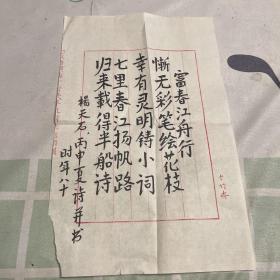 富春江舟行
惭无彩笔绘花枝
幸有灵明铸小词
七里春江扬帆路
归来载得半船诗
杨天石，丙申夏诗并书
时年八十